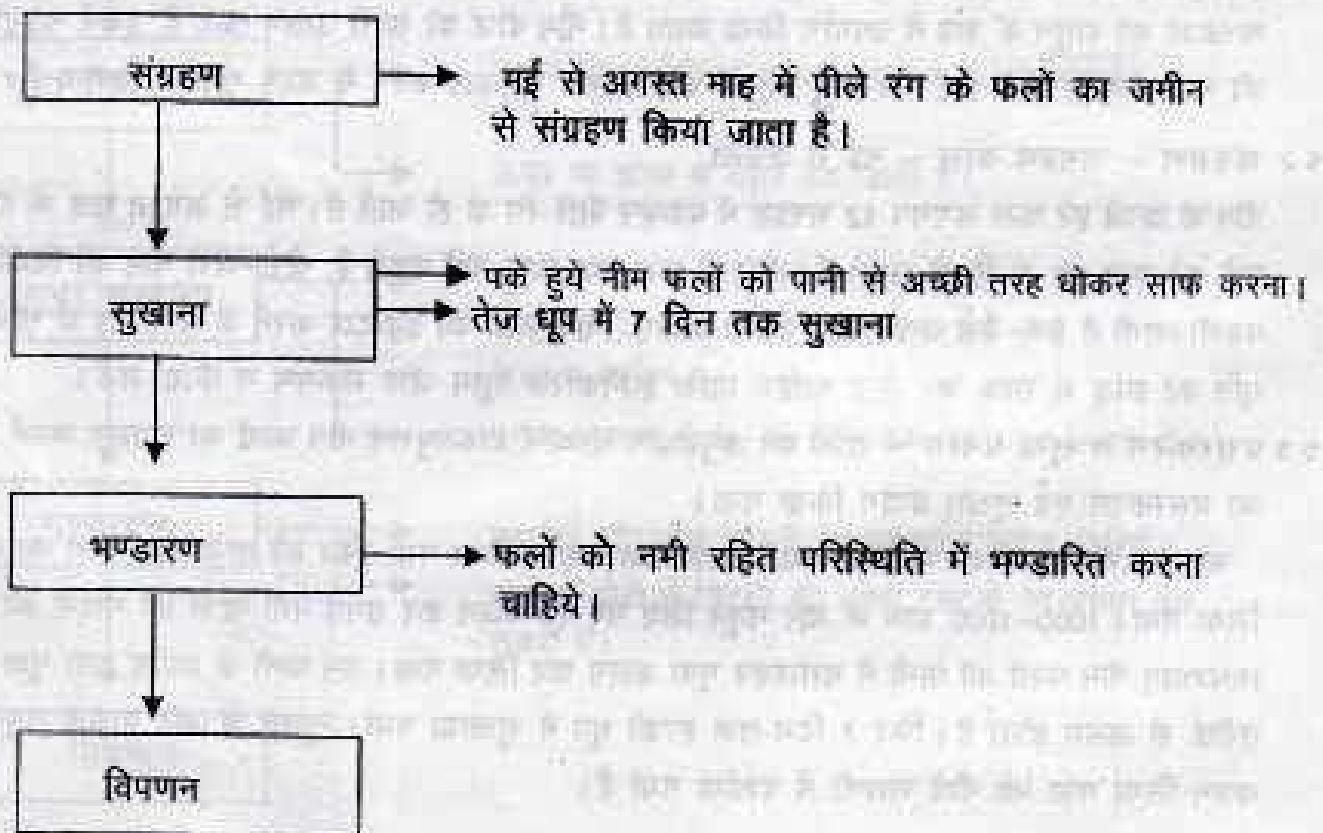 संग्रहण
मई से अगस्त माह में पीले रंग के फलों का जमीन
से संग्रहण किया जाता है।
सुखाना
पके हुये नीम फलों को पानी से अच्छी तरह धोकर साफ करना।
तेज धूप में 7 दिन तक सुखाना
भण्डारण
फलों को नमी रहित परिस्थिति में भण्डारित करना
चाहिये।
विपणन